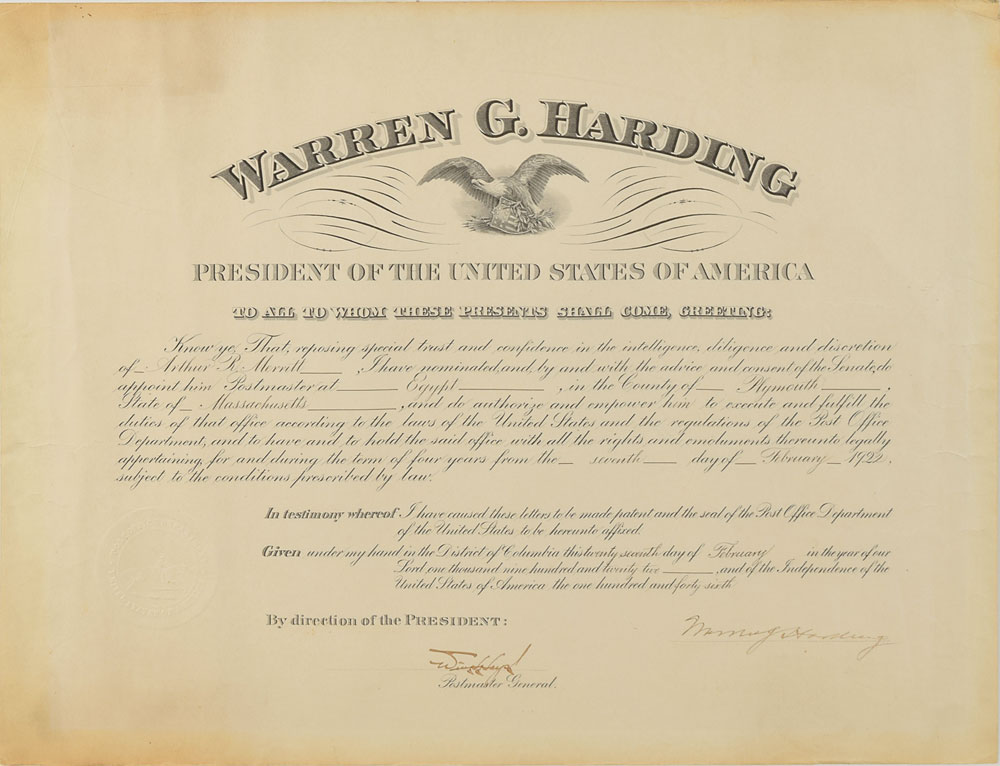 WARREN G. HARDING
PRESIDENT OF THE UNITED STATES OF AMERICA
TO ALL TO WHOM THESE PRESENTS SHALL COME, GREETING:
Know ye, That, reposing special trust and confidence in the intelligence, diligence and discretion
of Arthur R. Merritt, I have nominated, and, by and with the advice and consent of the Senate, do
appoint him Postmaster at Egypt, in the County of Plymouth,
State of Massachusetts, and do authorize and empower him to execute and fulfill the
duties of that office according to the laws of the United States and the regulations of the Post Office
Department, and to have and to hold the said office, with all the rights and emoluments thereunto legally
appertaining, for and during the term of four years from the seventh day of February 1922,
subject to the conditions prescribed by law.
In testimony whereof I have caused these letters to be made patent and the seal of the Post Office Department
of the United States to be hereunto affixed.
Given under my hand in the District of Columbia this twenty seventh day of February in the year of our
Lord one thousand nine hundred and twenty two, and of the Independence of the
United States of America the one hundred and forty sixth
By direction of the PRESIDENT:
Warren G Harding
Postmaster General.